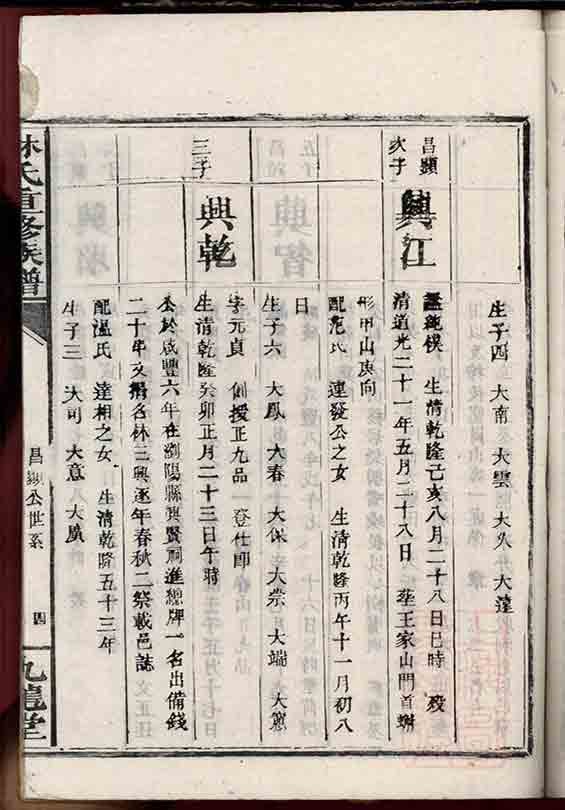 生子四 大南 大雲 大久 大蓬
昌顯
次子
興江
謚純樸 生清乾隆己亥八月二十八日巳時 殁
清道光二十一年五月二十八日 塟王家山門首蝴
形甲山庚向
配范氏 連發公之女 生清乾隆丙午十一月初八
日
生子六 大鳳 大春 大保 大崇 大端 大
三子
興乾
字元貞 例授正九品 登仕郎
生清乾隆癸卯正月二十三日午時
公於咸豐六年在瀏陽縣興賢祠進總牌一名出備錢
二十串文捐名林三興逐年春秋二祭載邑誌
配溫氏 達相之女 生清乾隆五十三年
生子三 大司 大意 大廣
林氏直修族譜
昌顯公世系
四
九龍堂